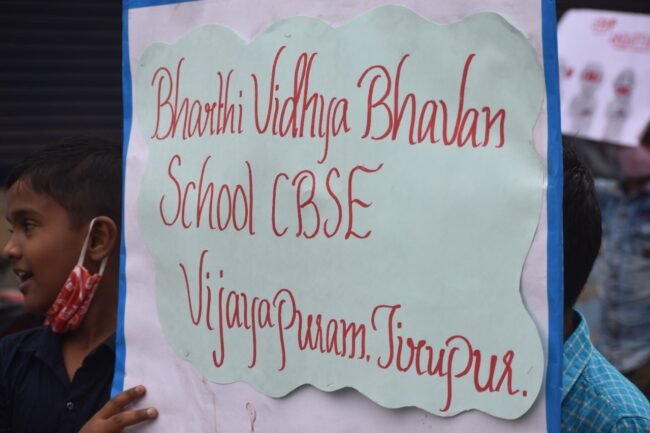 Bharthi Vidhya Bhavan
School CBSE
Vijayapuram. Tirupur.